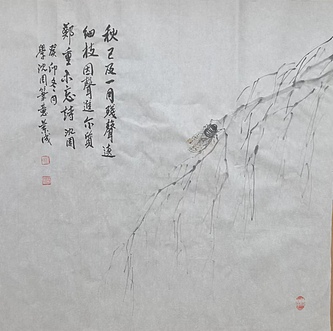 秋已及一月殘聲遶
細枝因聲追尔質
鄭重未忘詩 沈周
癸卯冬月
學沈周筆意